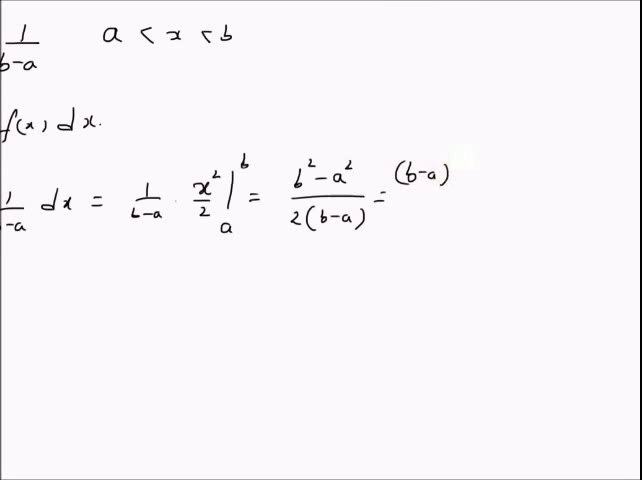 1/(b-a) a < x < b
f(x) dx.
1/(b-a) dx = 1/(b-a) · x²/2 |ₐᵇ = (b² - a²)/(2(b-a)) = (b-a)